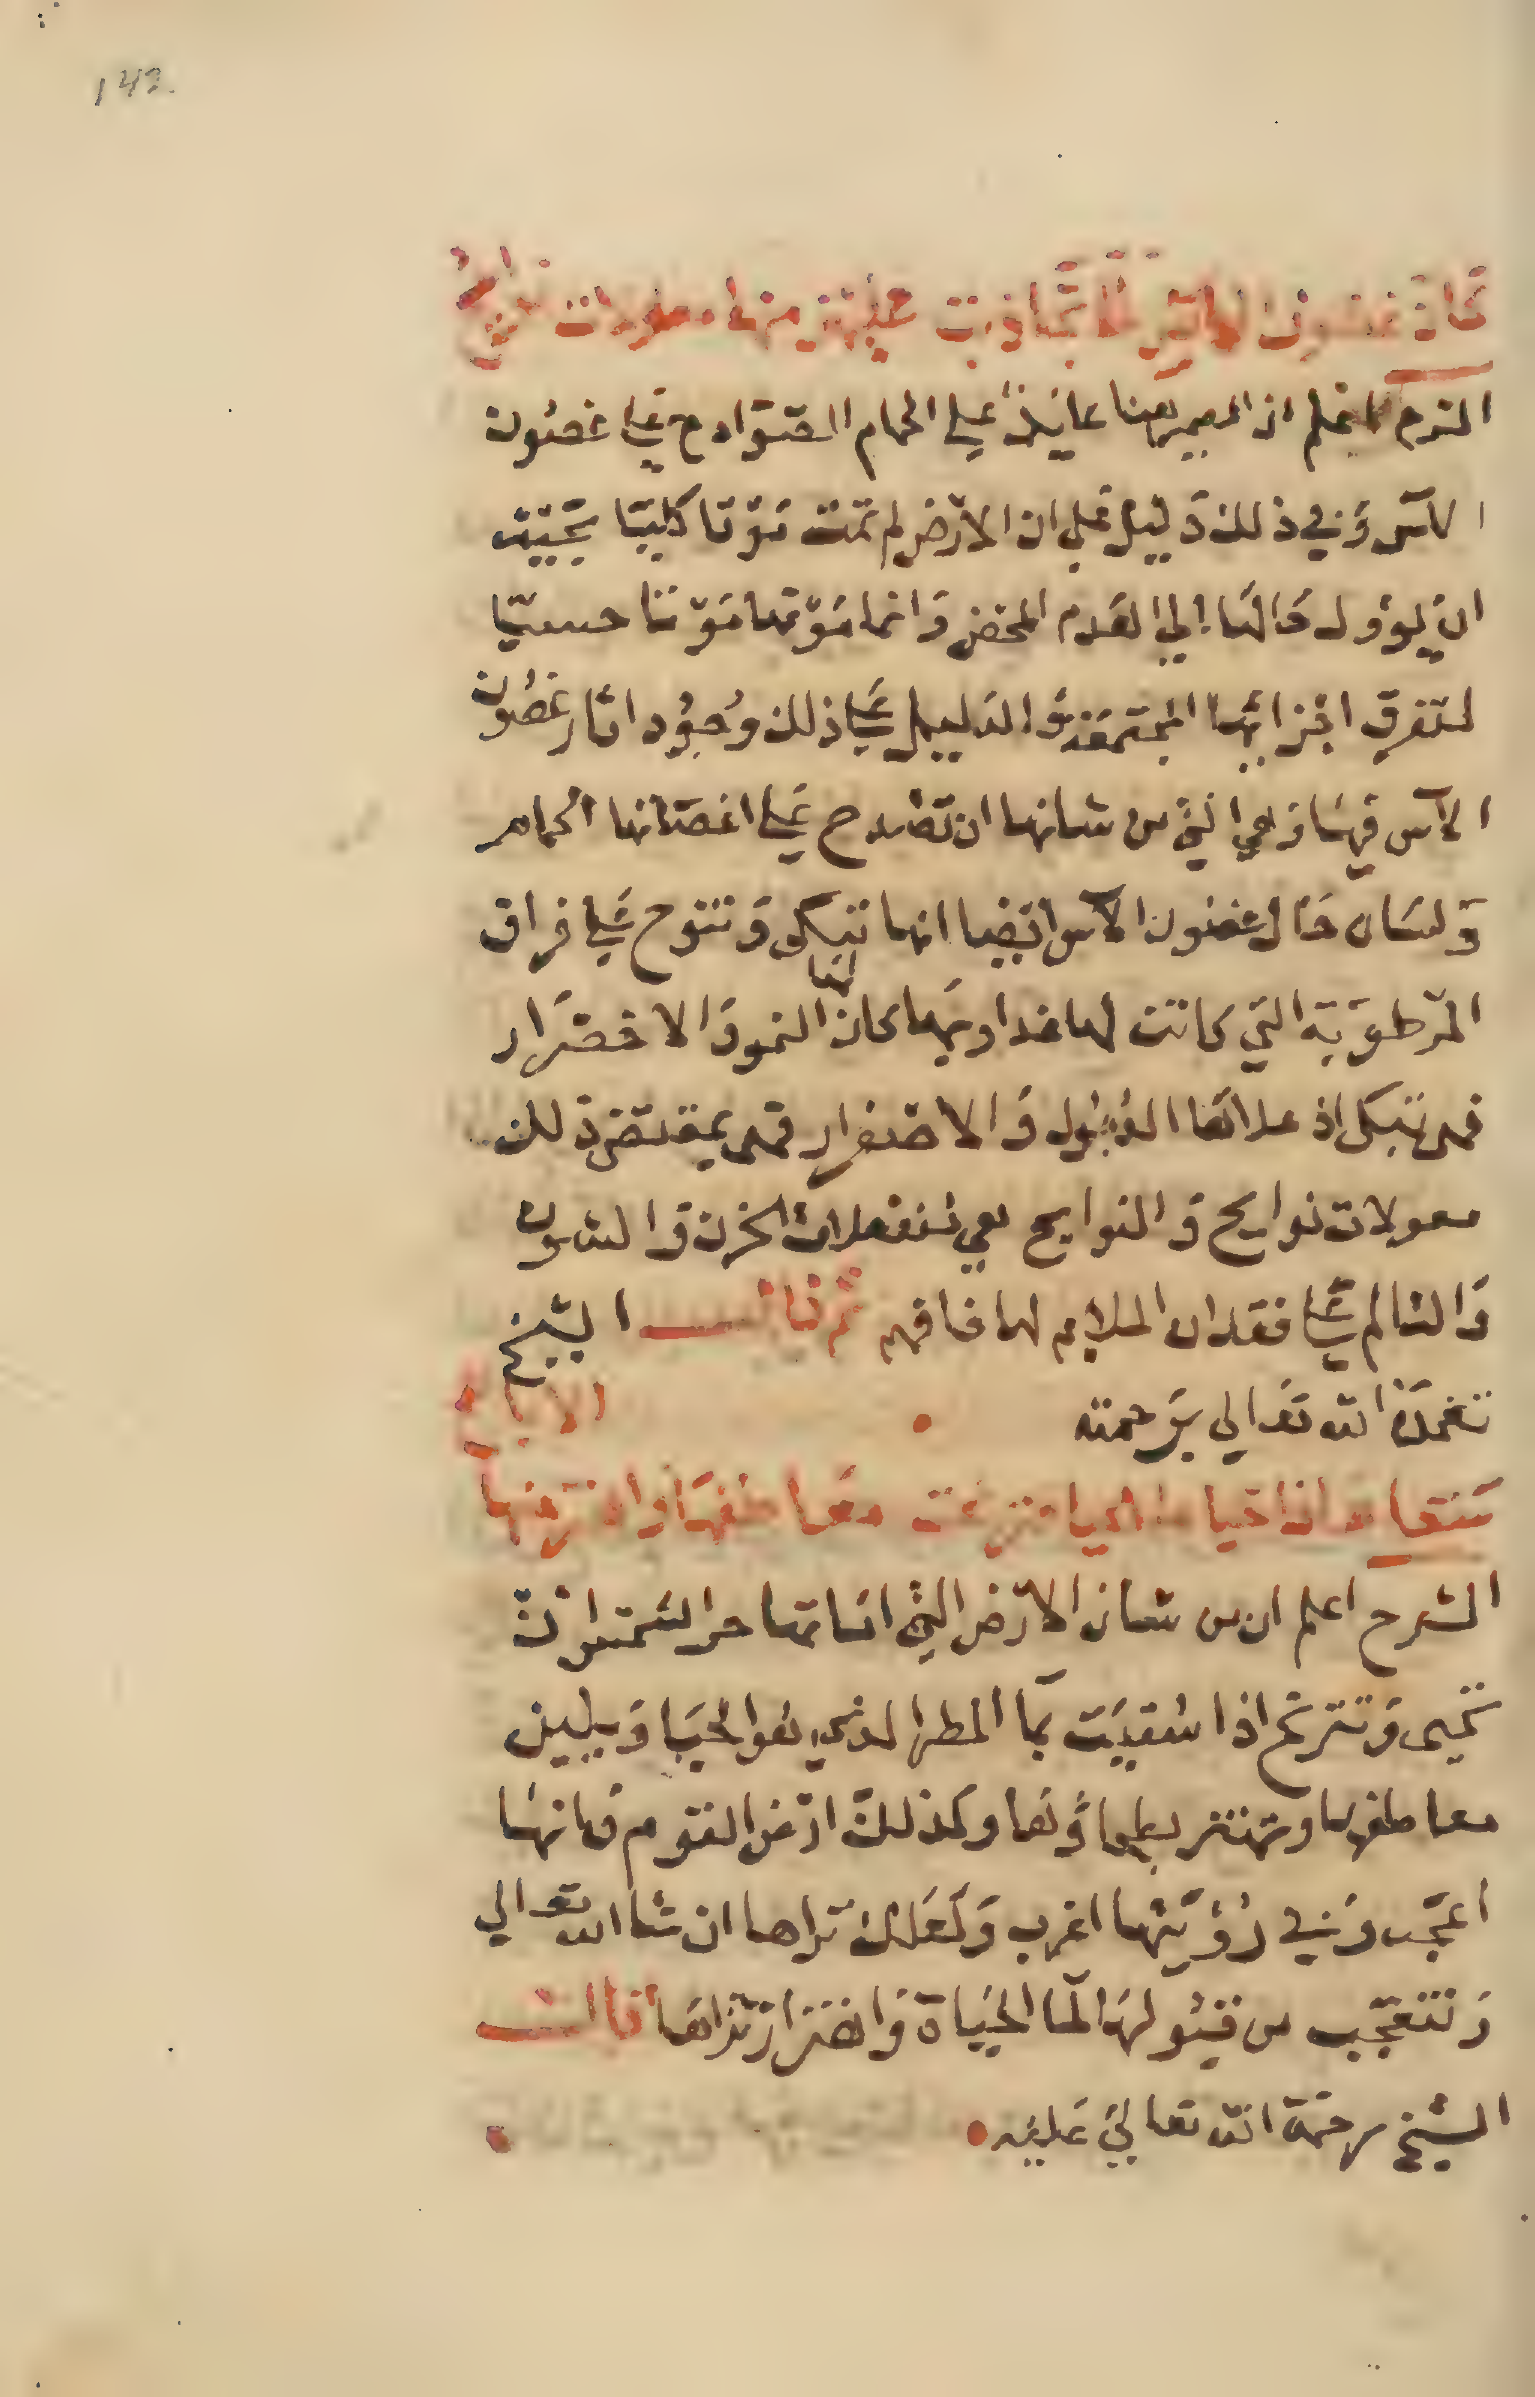 143
كان غصون الآس لما تجاذبت عليهن منها معولات نوايح
الشرح اعلم ان الضمير هنا عايد على الحمام الصوادح على غصون
الآس وفي ذلك دليل على ان الارض لم تمت موتا كليا بحيث
ان يؤول حالها الي العدم المحض وانما موتها موتا حسيا
لتفرق اجزائها المجتمعة والدليل على ذلك وجود اثار غصون
الآس فيها وهي التي من شانها ان تصدح على اغصانها الحمام
ولسان حال غصون الآس ايضا انها تبكى وتنوح على فراق
الرطوبة التي كانت لها غدا وبها كان لها النمو والاخضرار
فهى تبكى اذ علاها الذبول والاصفرار فهى بمقتضى ذلك
معولات نوايح والنوايح هي المنفعلات الحزن والشوق
والتالم على فقدان الملايم لها فافهم ثم قال الشيخ
تغمده الله تعالي برحمته
سقاها اذا حياها الحيا مترنحت معاطفها واهتز منها الاباطح
الشرح اعلم ان من شان الارض التي اماتها حر الشمس ان
تحيى وتترنح اذا سقيت بما المطر الذي هو الحيا ويلين
معاطفها وتهتز بطحاؤها وكذلك ارض القوم فانها
اعجب وفي رؤيتها اغرب ولعلك تراها ان شا الله تعالي
وتتعجب من قبولها لما الحياة واهتزاز ثراها قال
الشيخ رحمة الله تعالي عليه